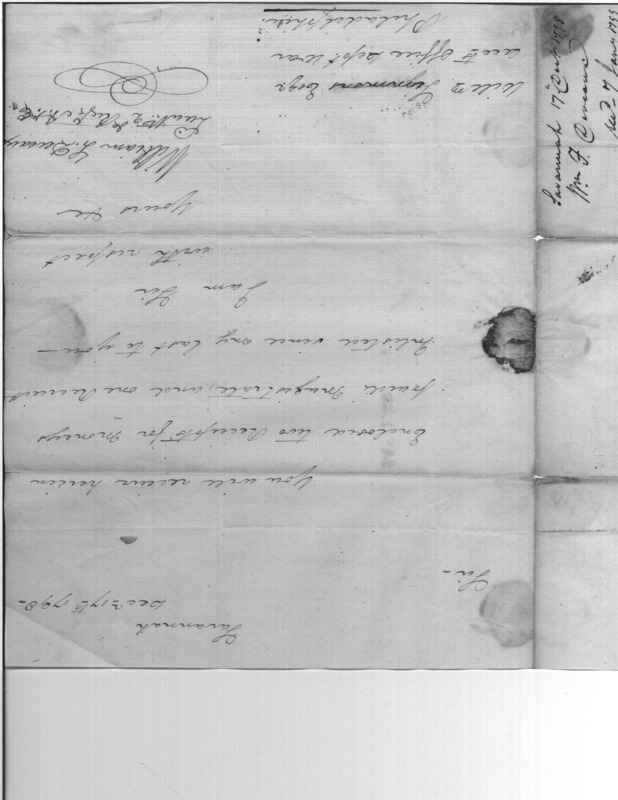 Savannah
Decr 17th 1798.
Sir –
You will receive herein
Enclosed two Receipts for Moneys
paid Magistrate, and one Recruit
Inlisted since my last to you –
I am Sir
with respect
Yours &c
William F. Dunning
Lieut. 
Will m Simmons Esqr
acct. Office Dept War
Philadelphia.
Savannah 17 Decr 1798
Wm. F.
Recd 7 Jany 1799